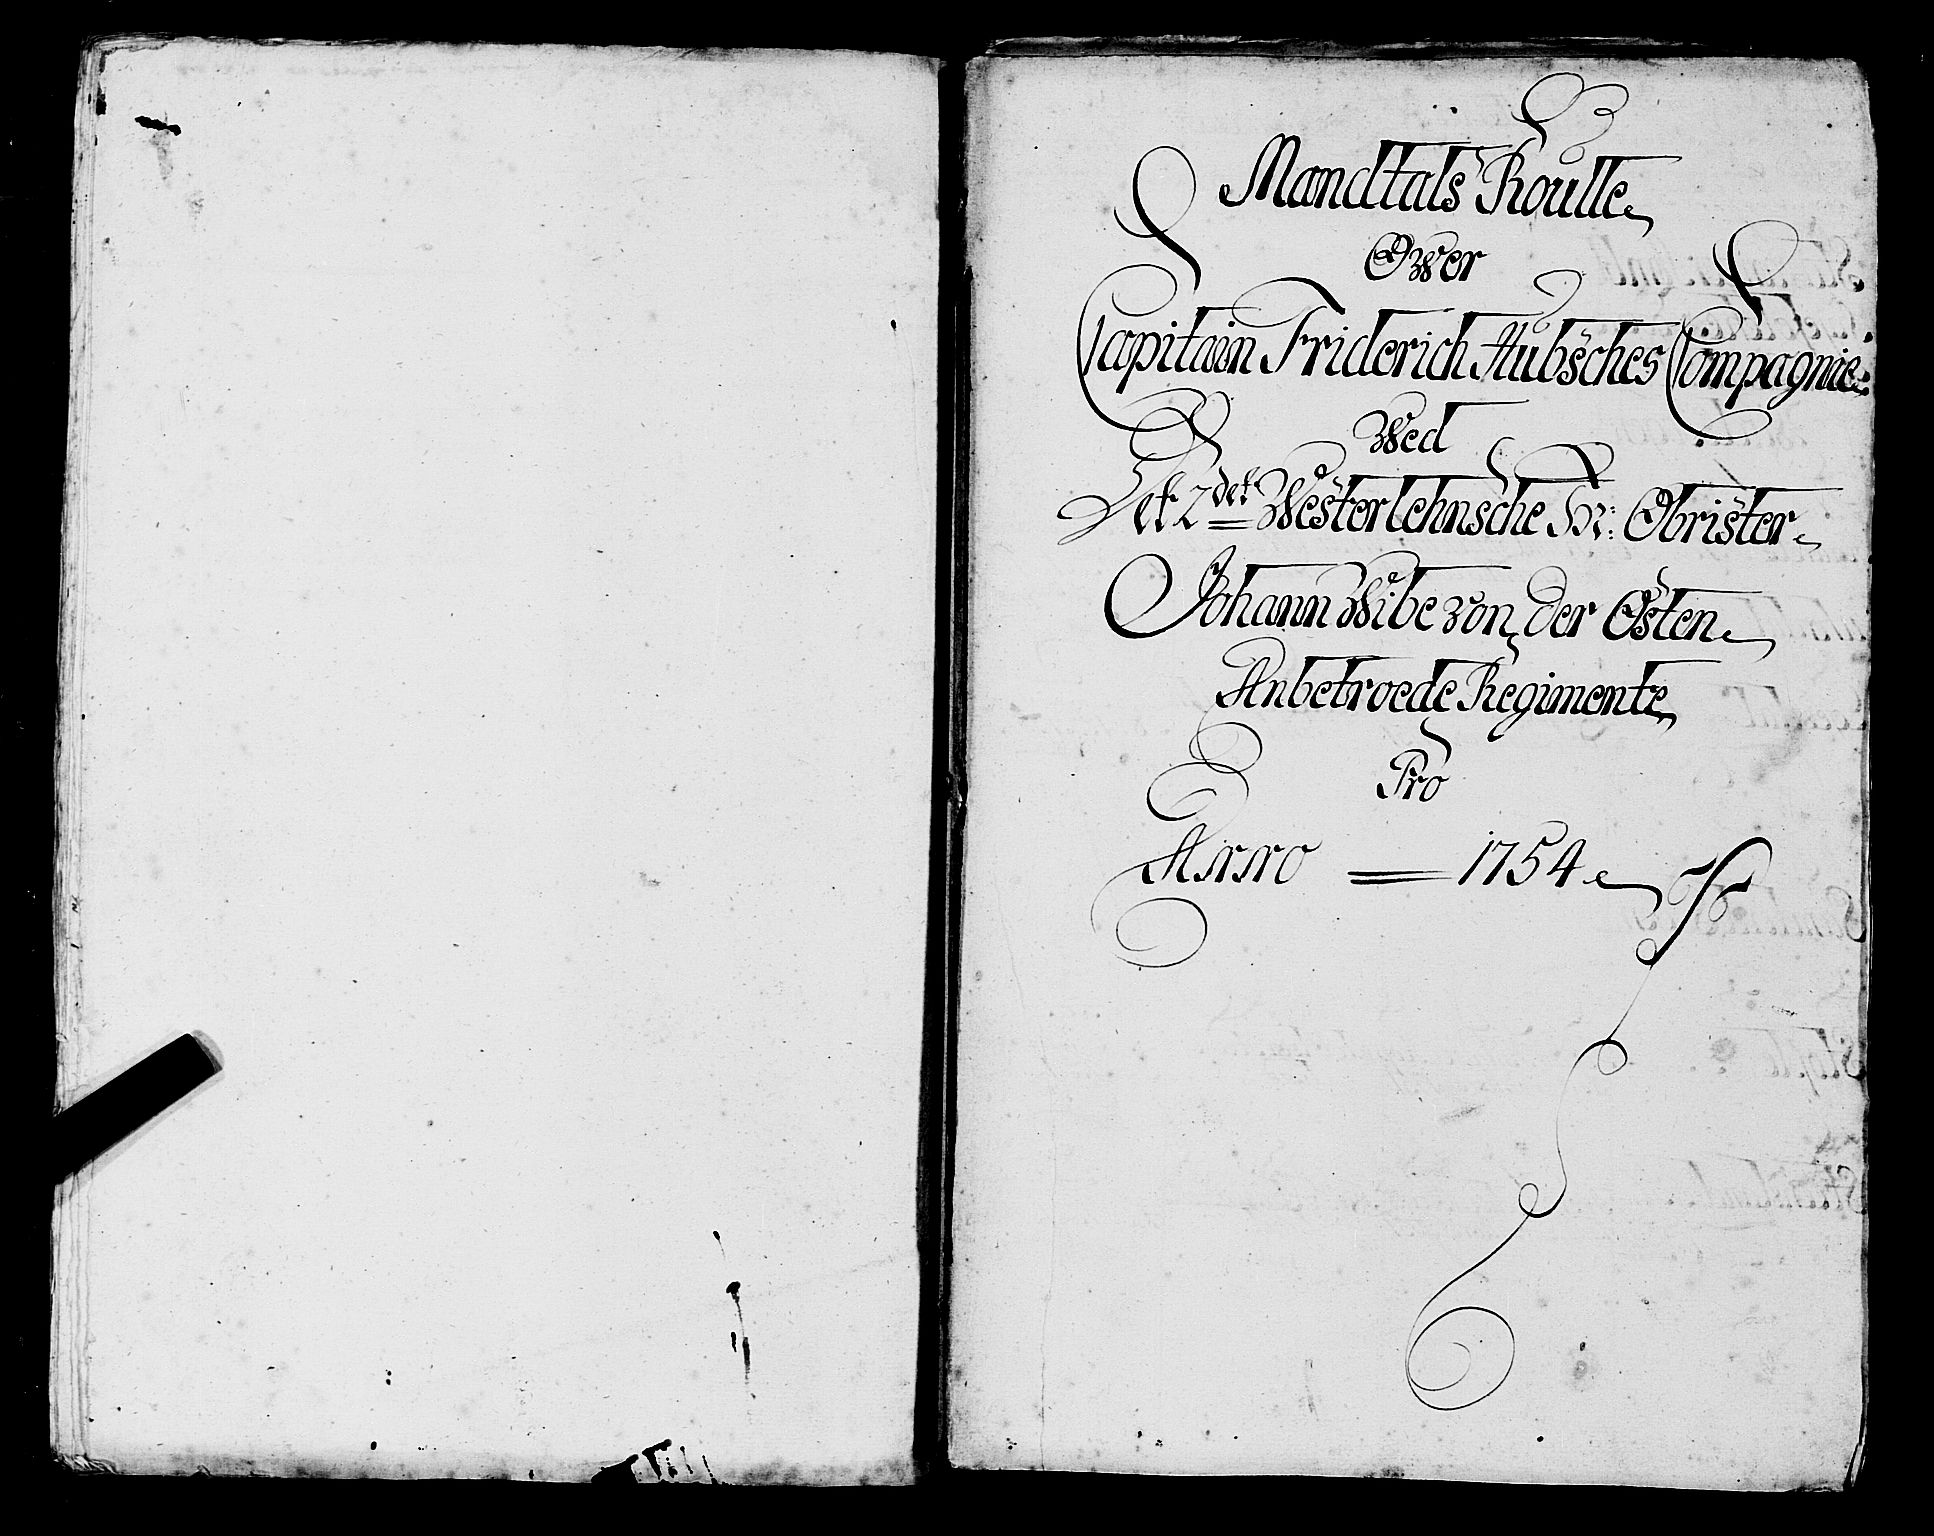 Mandtals Roulle
Ower
Capitain Friderich Hubsches Compagnie
Wed
Det 2det Westerlehnsche Hr: Obrister
Johann Wibe von der Østen
Anbetroede Regimente
Pro
Anno = 1754